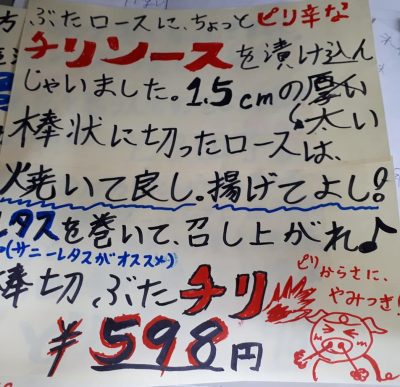 ぶたロースに、ちょっとピリ辛な
チリソースを漬け込ん
じゃいました。1.5cmの太い
棒状に切ったロースは、
焼いて良し。揚げてよし!
レタスを巻いて、召し上がれ♪
(サニーレタスがオススメ)
棒切ぶたチリ
ピリからさに、
やみつき!
¥598円